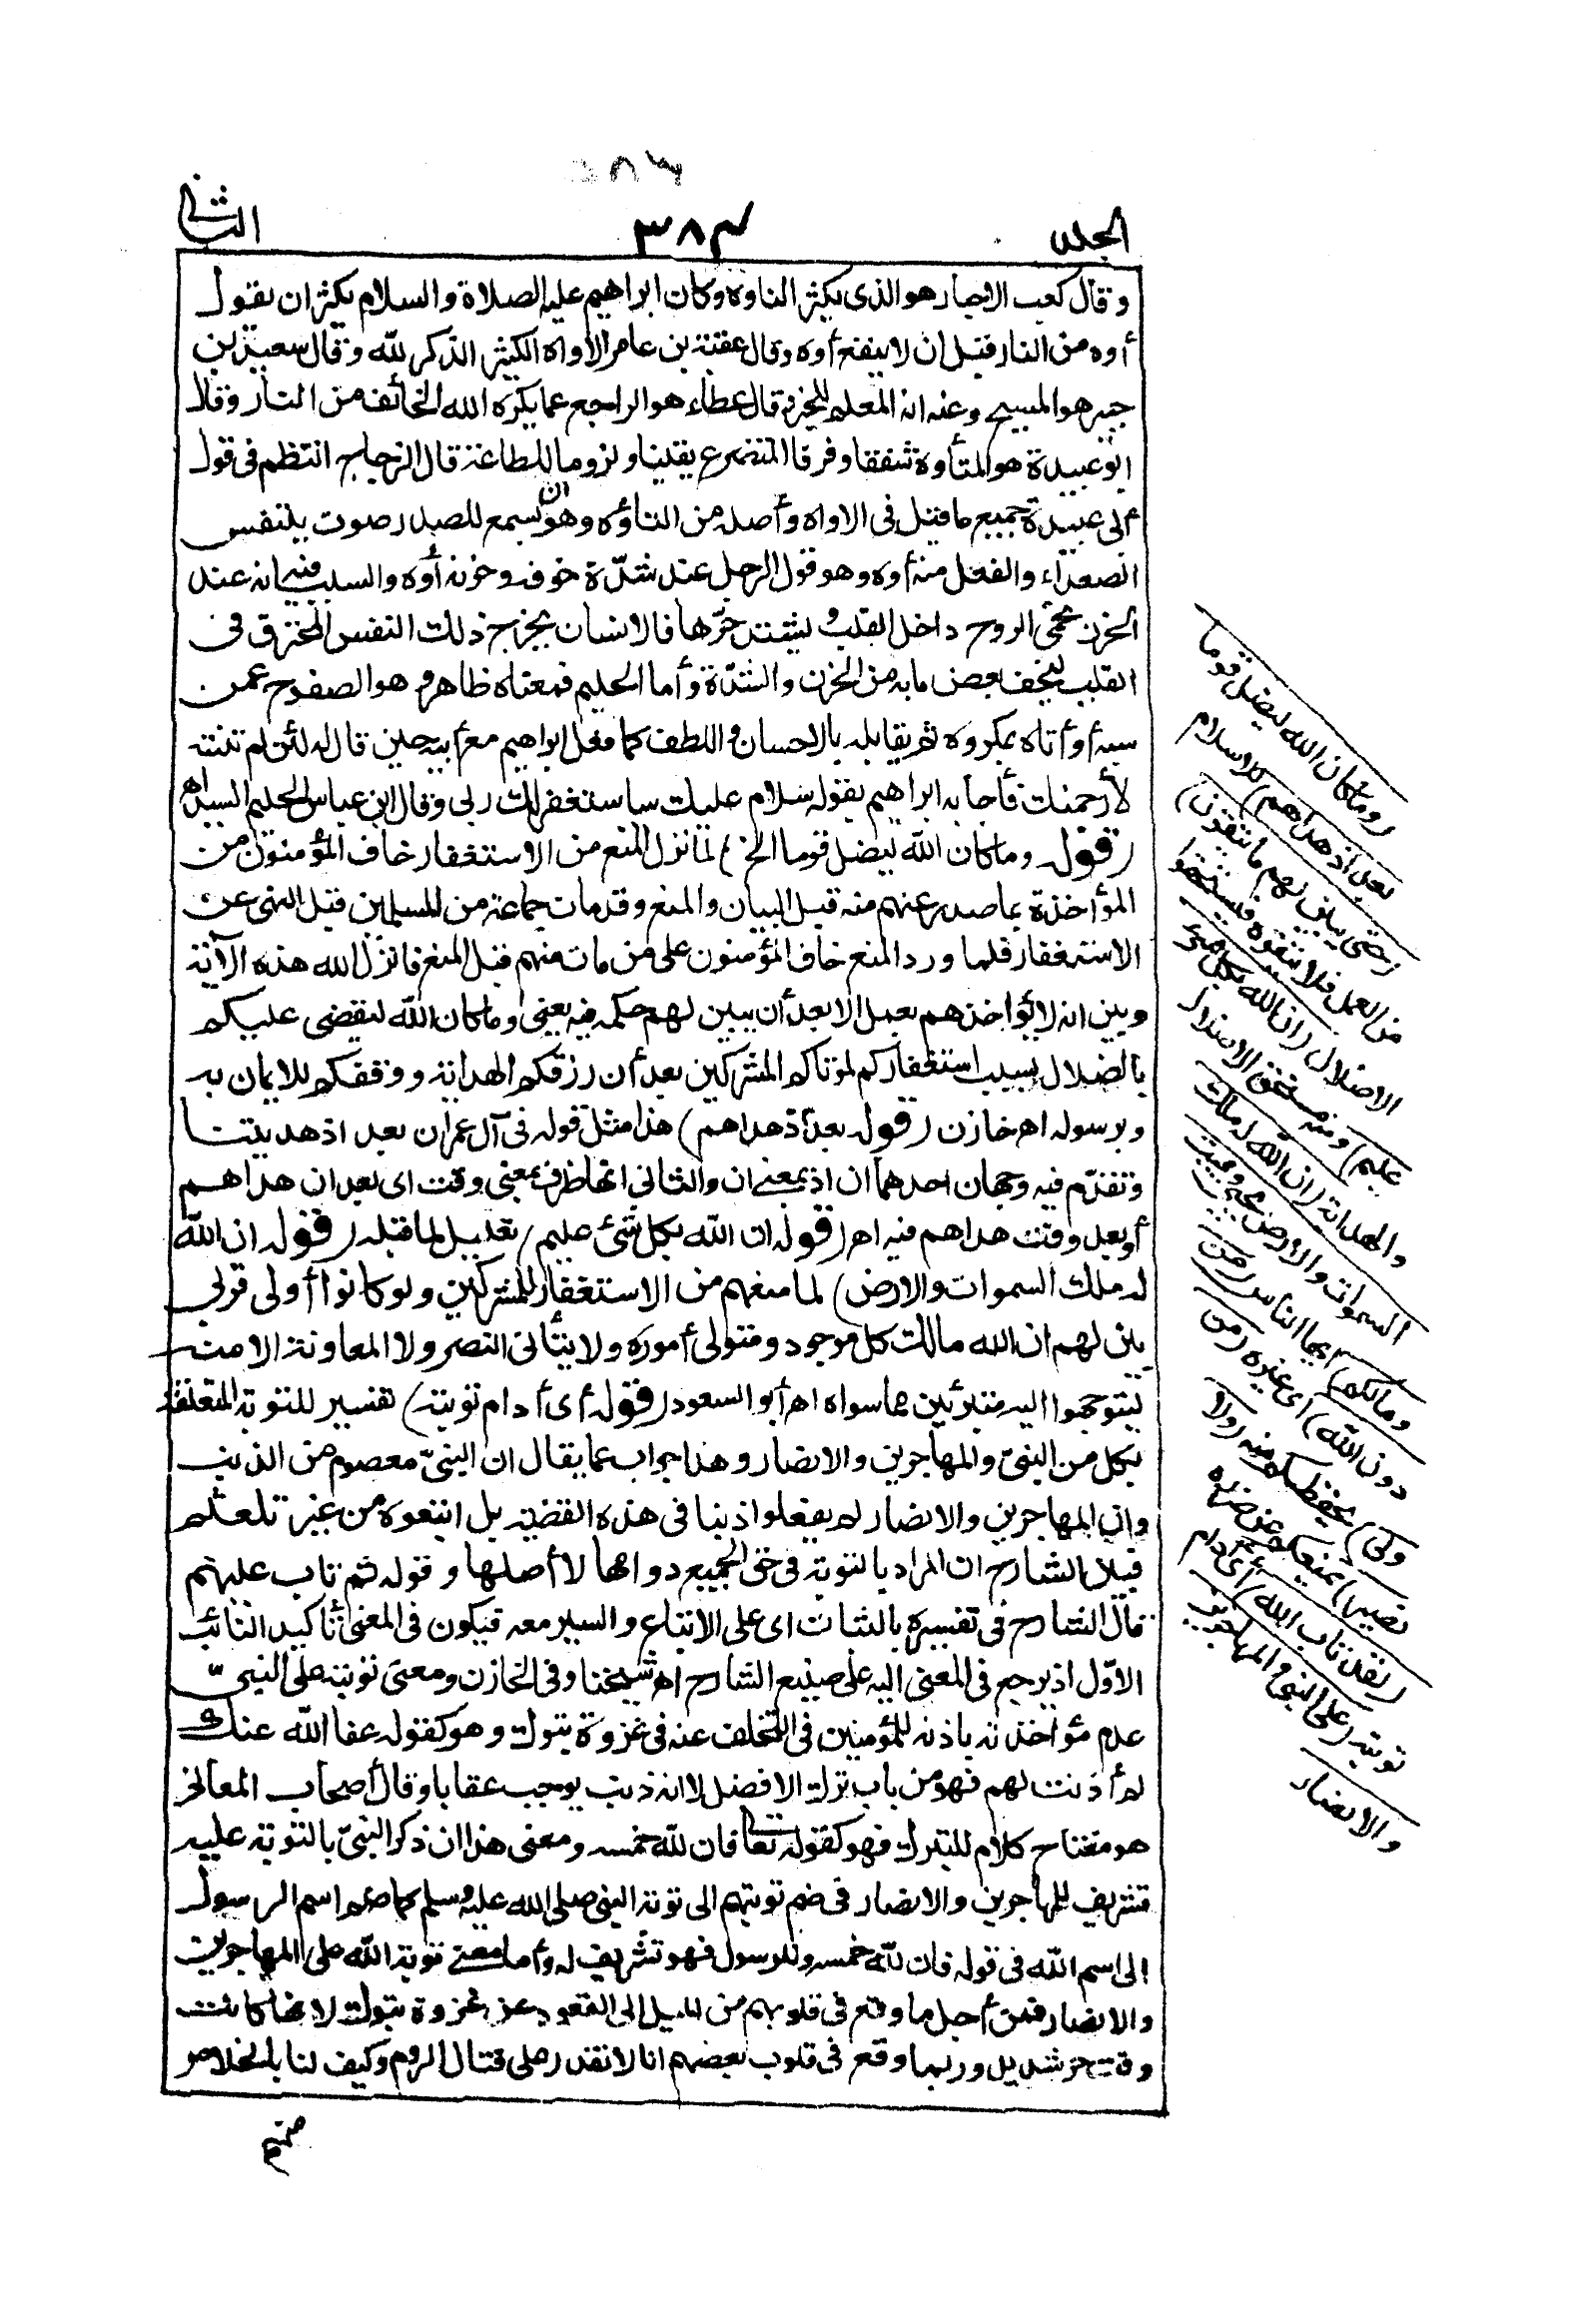 الجلد
٣٨٣
الثاني
وقال كعب الاحبار هو الذى يكثر التاوه وكان ابراهيم عليه الصلاة والسلام يكثر ان يقول
أوه من النار قبل ان لا ينفع أوه وقال عقبة بن عامر الأواه الكثير الذكر لله وقال سعيد بن
جبير هو المسبح وعنه انه المعلم للخير قال عطاء هو الراجع عما يكره الله الخائف من النار وقال
ابو عبيدة هو المتأوه شفقا وفرقا المتضرع يقينا ولزوما للطاعة قال الزجاج انتظم فى قول
أبى عبيدة جميع ما قيل فى الاواه وأصله من التأوه وهو ان يسمع للصدر صوت بتنفس
الصعداء والفعل منه أوه وهو قول الرجل عند شدّة خوف وحزنه أوه والسبب فيه انه عند
الحزن تحمى الروح داخل القلب ويشتد حرّها فالانسان يخرج ذلك النفس المحترق فى
القلب ليخف بعض ما به من الحزن والشدّة وأما الحليم فمعناه ظاهر وهو الصفوح عمن
سبه أو أتاه بمكروه ثم يقابله بالاحسان واللطف كما فعل ابراهيم مع أبيه حين قال له لئن لم تنته
لأرجمنك فأجابه ابراهيم بقوله سلام عليك ساستغفر لك ربى وقال ابن عباس الحليم السيد اهـ
(قوله وما كان الله ليضل قوما الخ) لما نزل المنع من الاستغفار خاف المؤمنون من
المؤاخذة بما صدر عنهم منه قبل البيان والمنع وقد مات جماعة من المسلمين قبل النهى عن
الاستغفار فلما ورد المنع خاف المؤمنون على من مات منهم قبل المنع فانزل الله هذه الآية
وبين انه لا يؤاخذهم بعمل الا بعد أن يبين لهم حكمه فيه يعنى وما كان الله ليقضى عليكم
بالضلال بسبب استغفاركم لموتاكم المشركين بعد أن رزقكم الهداية ووفقكم للايمان به
وبرسوله اهـ خازن (قوله بعد اذ هداهم) هذا مثل قوله فى آل عمران بعد اذ هديتنا
وتقدّم فيه وجهان احدهما ان اذ بمعنى ان والثانى انها ظرف بمعنى وقت اى بعد ان هداهم
أو بعد وقت هداهم فيه اهـ (قوله ان الله بكل شئ عليم) تعليل لما قبله (قوله ان الله
له ملك السموات والارض) لما منعهم من الاستغفار للمشركين ولو كانوا أولى قربى
بين لهم ان الله مالك كل موجود ومتولى أموره ولا يتأتى النصر ولا المعاونة الا منه
ليتوجهوا اليه متبرئين عما سواه اهـ أبو السعود (قوله أى أدام توبته) تفسير للتوبة المتعلقة
بكل من النبىّ والمهاجرين والانصار وهذا جواب عما يقال ان النبىّ معصوم من الذنب
وان المهاجرين والانصار لم يفعلوا ذنبا فى هذه القضية بل اتبعوه من غير تلعثم
فبين الشارح ان المراد بالتوبة فى حق الجميع دوامها لا أصلها وقوله ثم تاب عليهم
قال الشارح فى تفسيره بالثبات اى على الاتباع والسير معه فيكون فى المعنى تأكيد التائب
الاوّل اذ يرجع فى المعنى اليه على صنيع الشارح اهـ شيخنا وفى الخازن ومعنى توبته على النبىّ
عدم مؤاخذته باذنه للمؤمنين فى التخلف عنه فى غزوة تبوك وهو كقوله عفا الله عنك
لم أذنت لهم فهو من باب ترك الافضل لا انه ذنب يوجب عقابا وقال أصحاب المعانى
هو مفتاح كلام للتبرك فهو كقوله تعالى فان لله خمسه ومعنى هذا ان ذكر النبىّ بالتوبة عليه
تشريف للمهاجرين والانصار فى ضم توبتهم الى توبة النبى صلى الله عليه وسلم كما ضم اسم الرسول
الى اسم الله فى قوله فان لله خمسه وللرسول فهو تشريف له وأما معنى توبة الله على المهاجرين
والانصار فمن أجل ما وقع فى قلوبهم من الميل الى القعود عن غزوة تبوك لانها كانت
وقت حر شديد وربما وقع فى قلوب بعضهم انا لا نقدر على قتال الروم وكيف لنا بالخلاص
(وما كان الله ليضل قوما
بعد اذ هداهم) للاسلام
(حتى يبين لهم ما يتقون)
من العمل فلا يتقوه فيستحقوا
الاضلال (ان الله بكل شئ
عليم) ومنه مستحق الاضلال
والهداية (ان الله له ملك
السموات والارض يحيى ويميت
ومالكم) ايها الناس (من
دون الله) اى غيره (من
ولى) يحفظكم منه (ولا
نصير) يمنعكم عن ضرره
(لقد تاب الله) أى أدام
توبته (على النبى والمهاجرين
والانصار